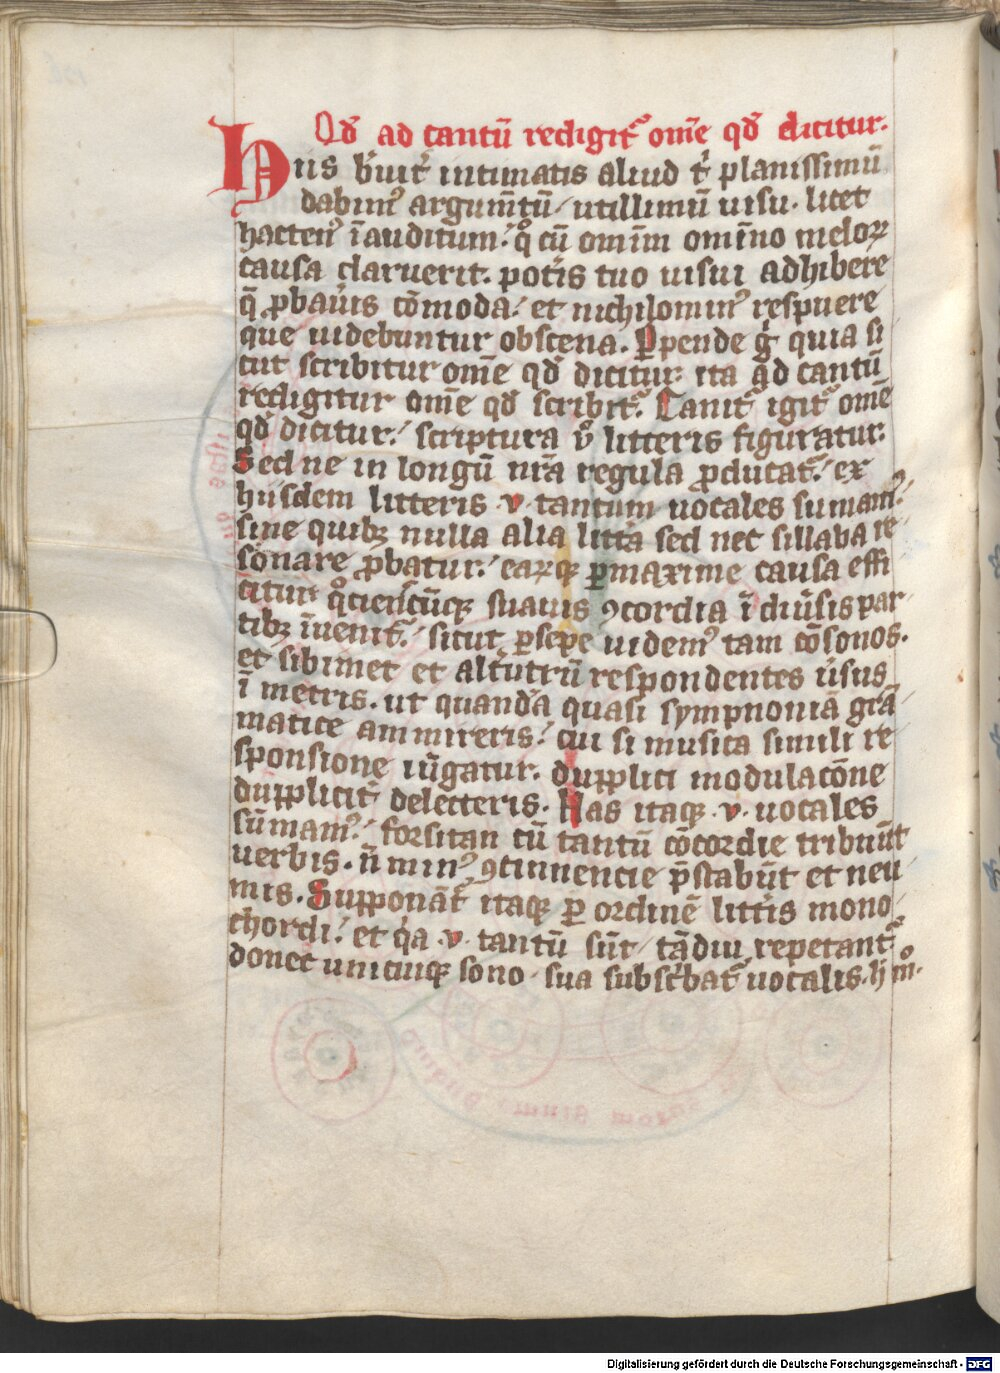 Qd̄ ad cantū redigit᷑ om̄e qd̄ dicitur.
Hiis b᷑uit᷑ intimatis aliud t᷑ planissimū
dabimꝰ argum̄tū / utillimū uisu. licet
hactenꝰ īauditum / qͦ cū omīm omīno meloꝝ
causa claruerit. potis tuo uisui adhibere
q̄ ꝓbau᷑is cōmoda / et nichilominꝰ respuere
que uidebuntur obscena. Ꝑpende g᷑ quia si
cut scribitur om̄e qd̄ dicitur ita ad cantū
redigitur om̄e qd̄ scribit᷑. Canit᷑ igit᷑ om̄e
qd̄ dicitur / scriptura v᷑o litteris figuratur.
Sed ne in longū nr̄a regula ꝓducat᷑ / ex
hijsdem litteris .v. tantum uocales sumamꝰ /
sine quibꝫ nulla alia litt᷑a sed nec sillaba re
sonare ꝓbatur / eaꝝqꝫ ꝑmaxime causa effi
citur qͦciens̄cūqꝫ suauis ꝯcordia ī diu᷑sis par
tibꝫ īuenit᷑ / sicut ꝑsepe uidemꝰ tam cōsonos.
et sibimet et alt᷑utrū respondentes u᷑sus
ī metris. ut quandā quasi symphoniā grā
matice ammireris / cui si musica simili re
sponsione iūgatur. dupplici modulacōne
dupplicit᷑ delecteris. Has itaqꝫ .v. uocales
sūmamꝰ / forsitan cū tantū cōcordie tribuūt
uerbis. n̄ minꝰ ꝯcinnencie p̄stabūt et neu
mis. Supponāt᷑ itaqꝫ ꝑ ordinē litt᷑is mono
chordi / et qͥa .v. tantū sūt / tādiu repetant᷑
donec unicuiqꝫ sono sua subsc᷑bat᷑ uocalis. hͦ mͦ.
Digitalisierung gefördert durch die Deutsche Forschungsgemeinschaft - DFG